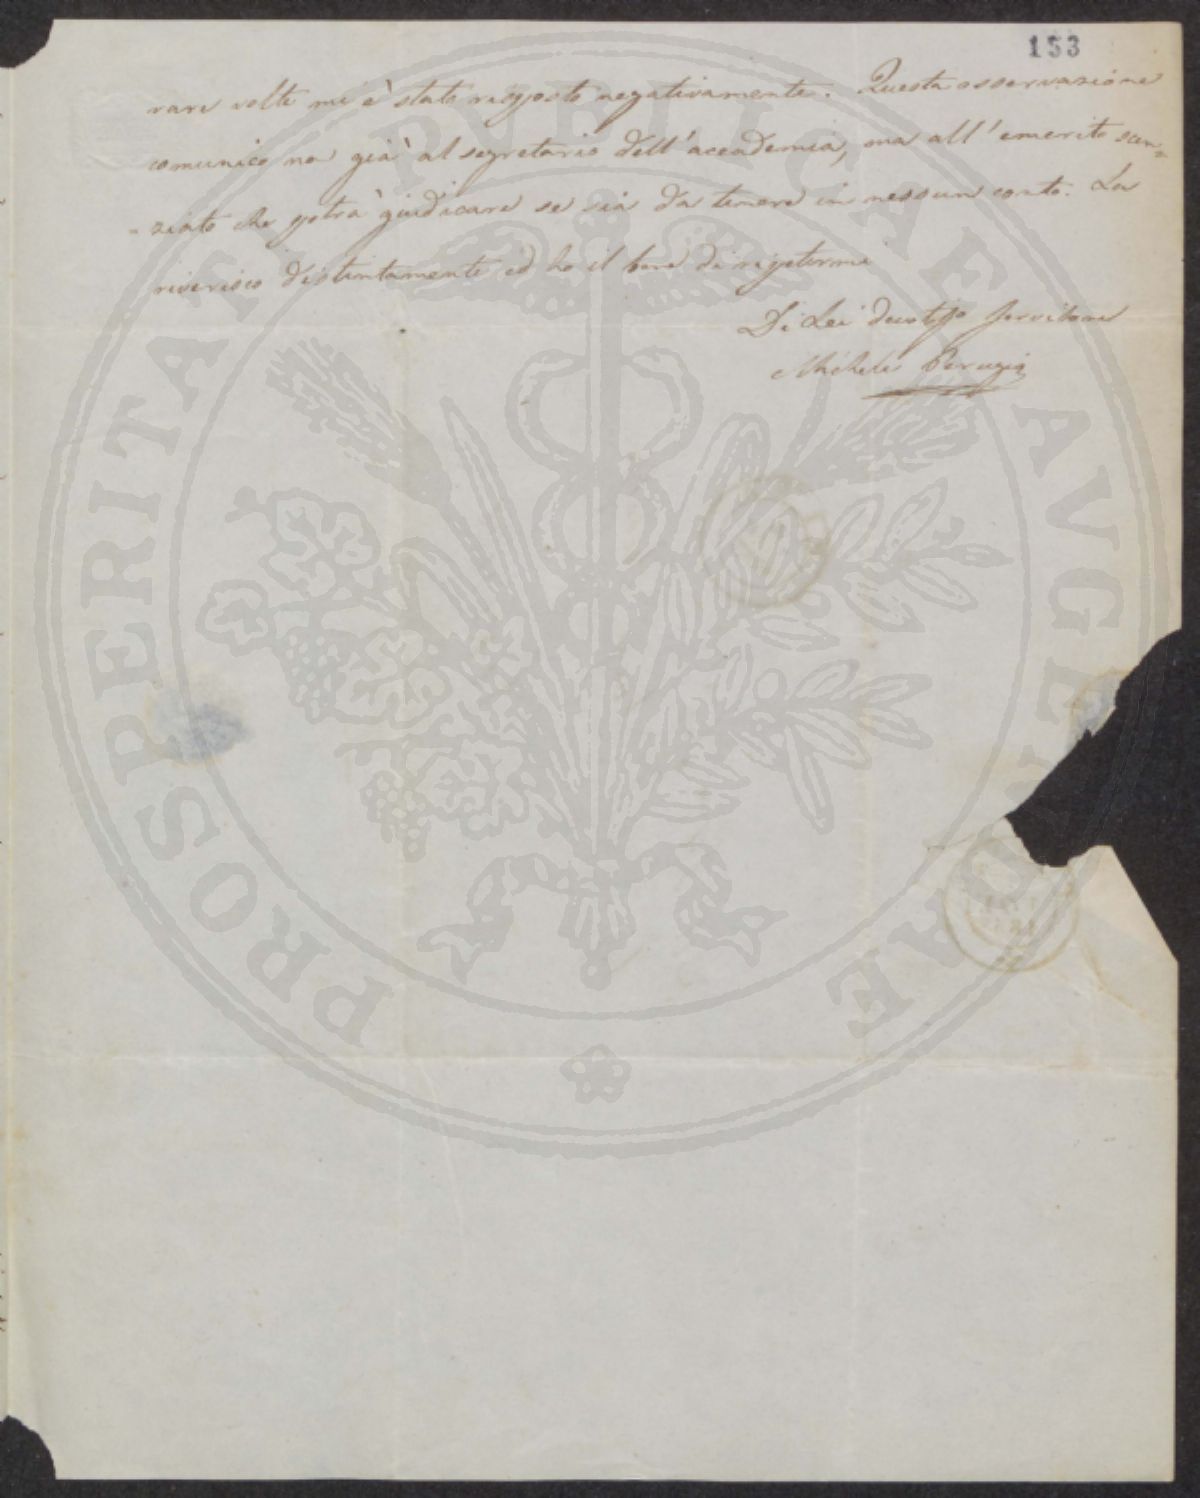 153
rare volte mi è stato risposto negativamente. Questa osservazione
comunico no già al segretario dell'accademia, ma all'emerito scen=
=ziato che potrà giudicare se sia da tenere in nessun conto. La
riverisco distintamente ed ho il bene di ripetermi
Di Lei devotiss Servitore
Michele Perugia
PROSPERITATI PVBLICAE AVGENDAE